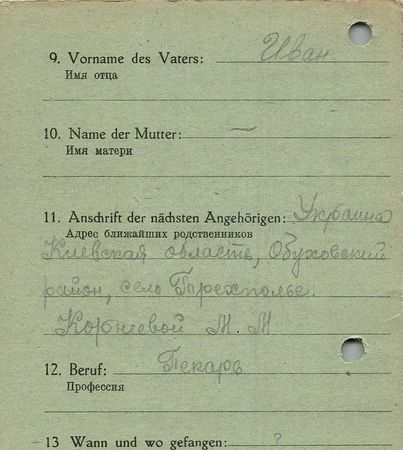 9. Vorname des Vaters: Иван
Имя отца
10. Name der Mutter: —
Имя матери
11. Anschrift der nächsten Angehörigen: Украина
Адрес ближайших родственников
Киевская область, Обуховский
район, село Трехполье
Корниевой М. М.
12. Beruf: Пекарь
Профессия
13 Wann und wo gefangen: ?